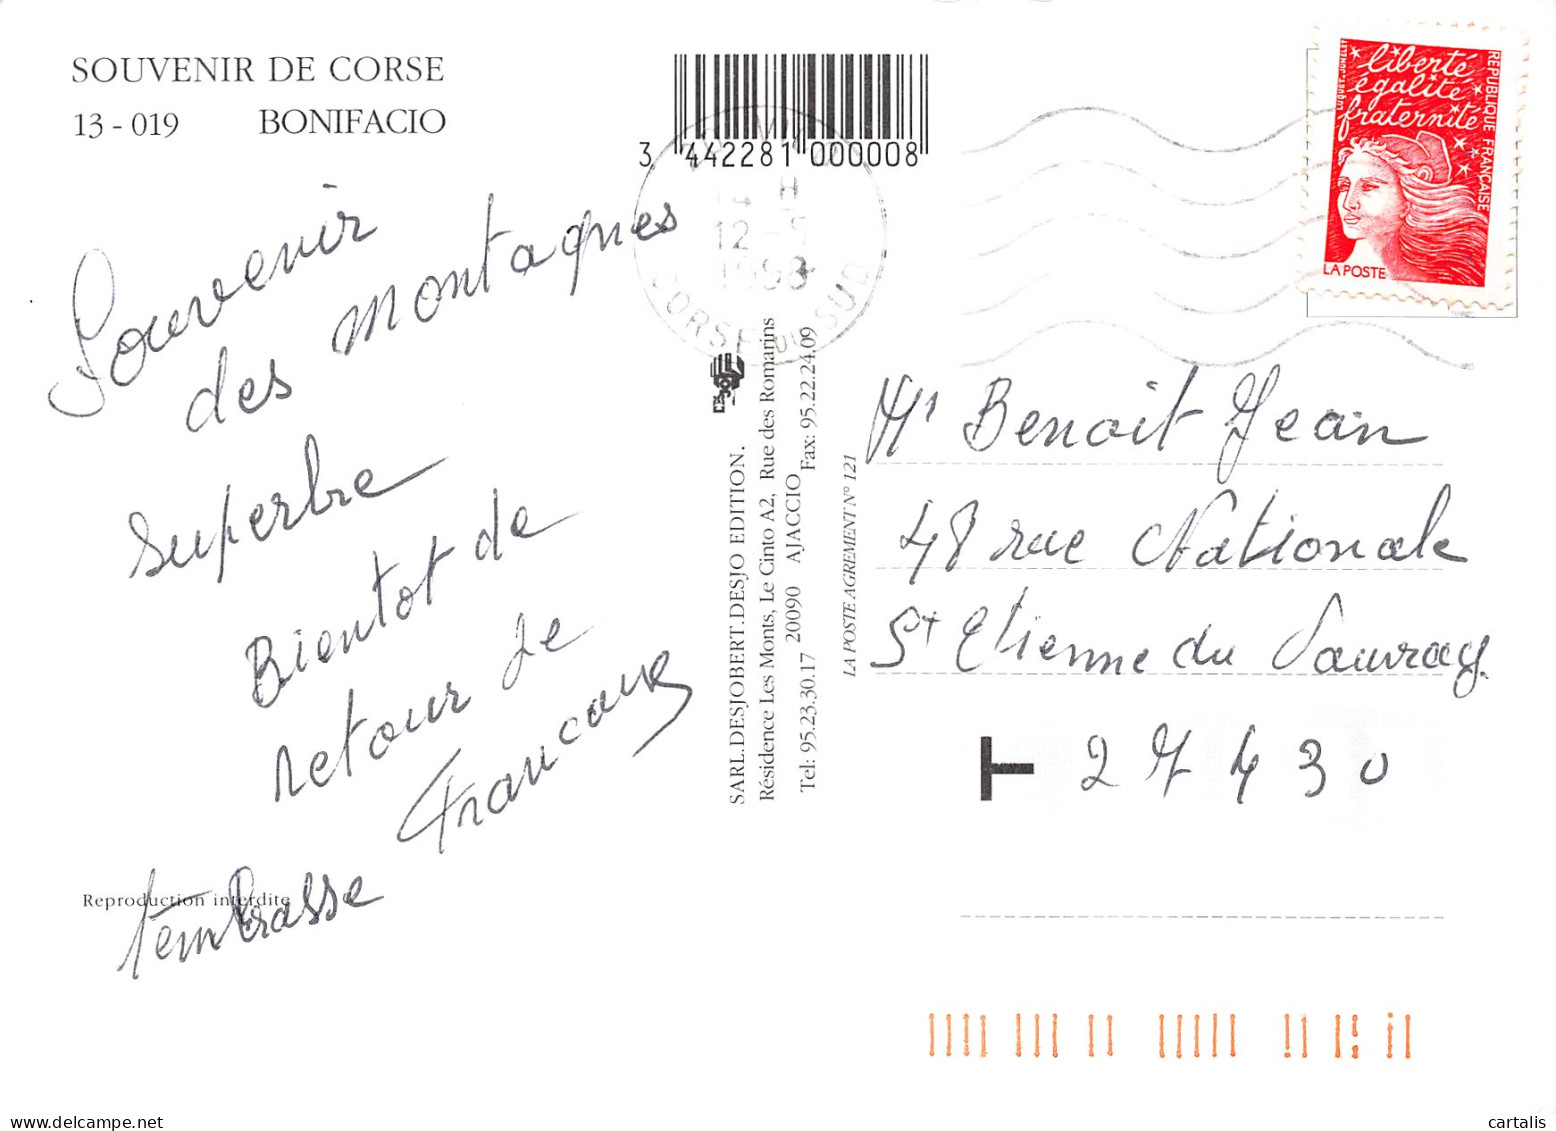 SOUVENIR DE CORSE
13 - 019 BONIFACIO
3 442281 000008
14 H
12 -5
1998
CORSE DU SUD
liberté
égalité
fraternité
REPUBLIQUE FRANÇAISE
LA POSTE
Souvenir
des montagnes
superbe
Bientot de
retour Je
t'embrasse
SARL.DESJOBERT.DESJO EDITION.
Résidence Les Monts, Le Cinto A2, Rue des Romarins
Tel: 95.23.30.17 20090 AJACCIO Fax: 95.22.24.09
LA POSTE AGREMENT N° 121
Mr Benoit Jean
48 rue Nationale
St Etienne du Vauvray
T 27430
Reproduction interdite
cartalis
delcampe.net